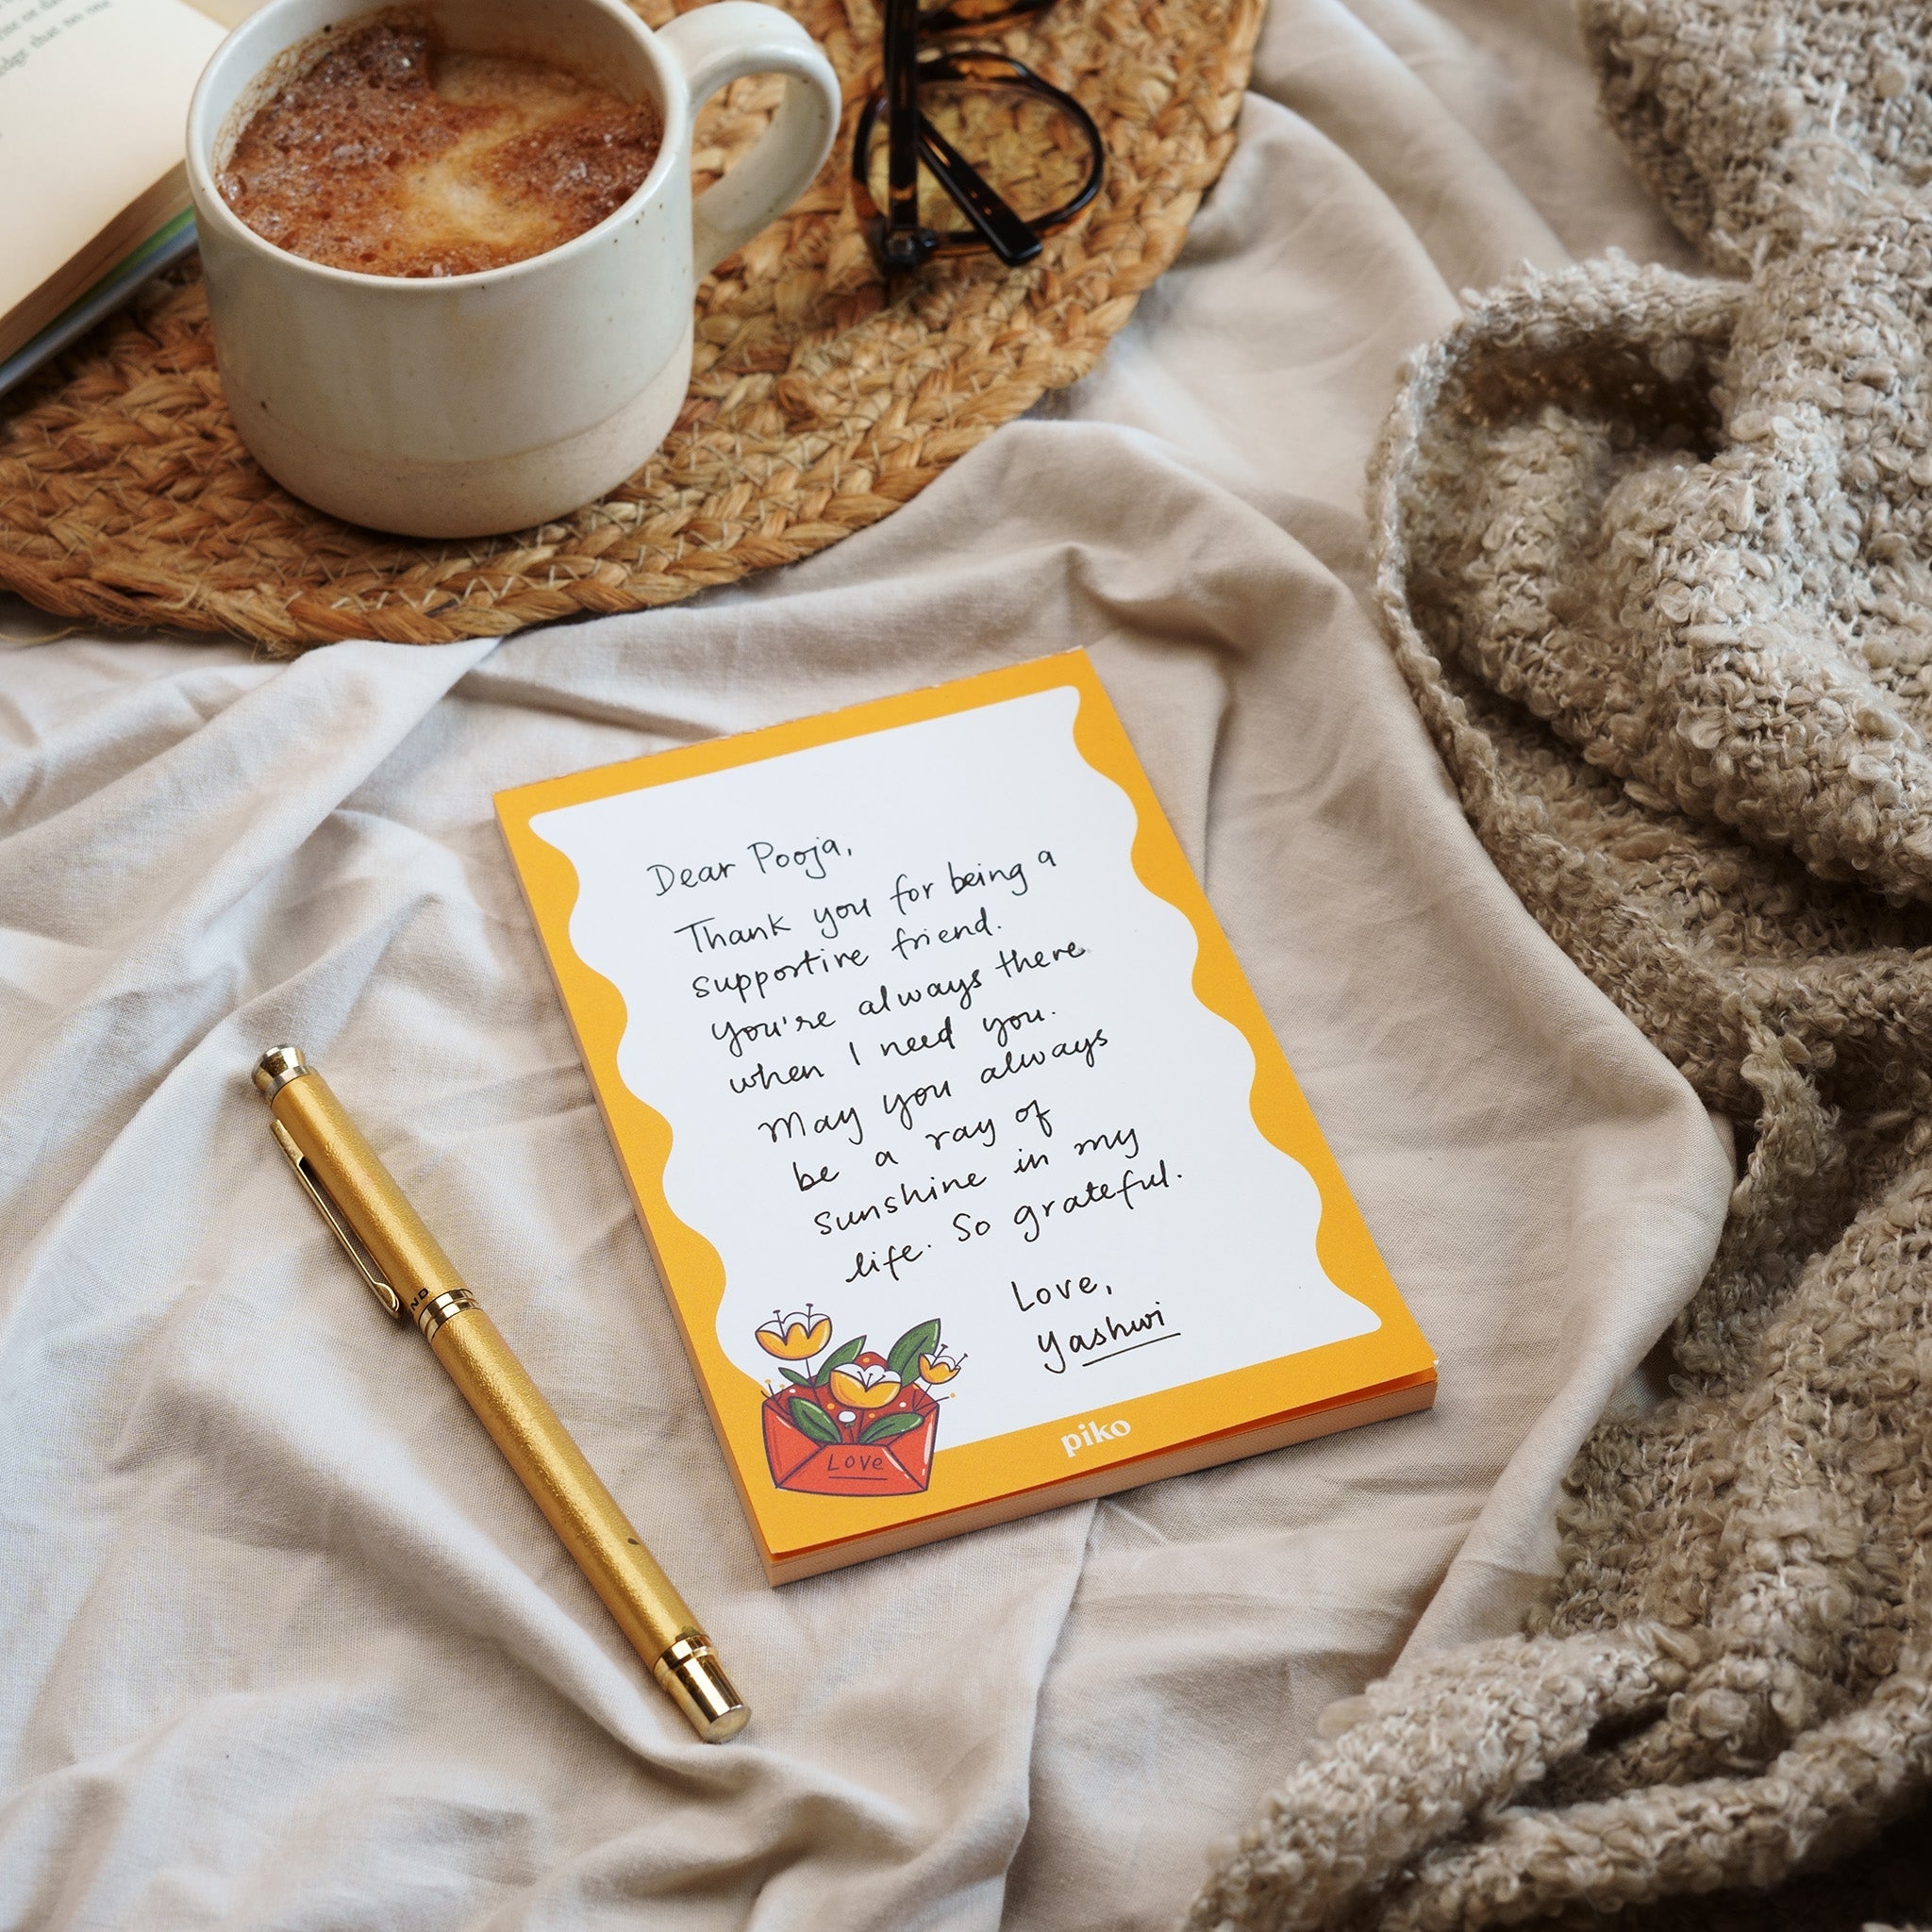 Dear Pooja,
Thank you for being a
supportive friend.
You're always there
when I need you.
May you always
be a ray of
sunshine in my
life. So grateful.
Love,
Yashwi
LOVE
piko
ND